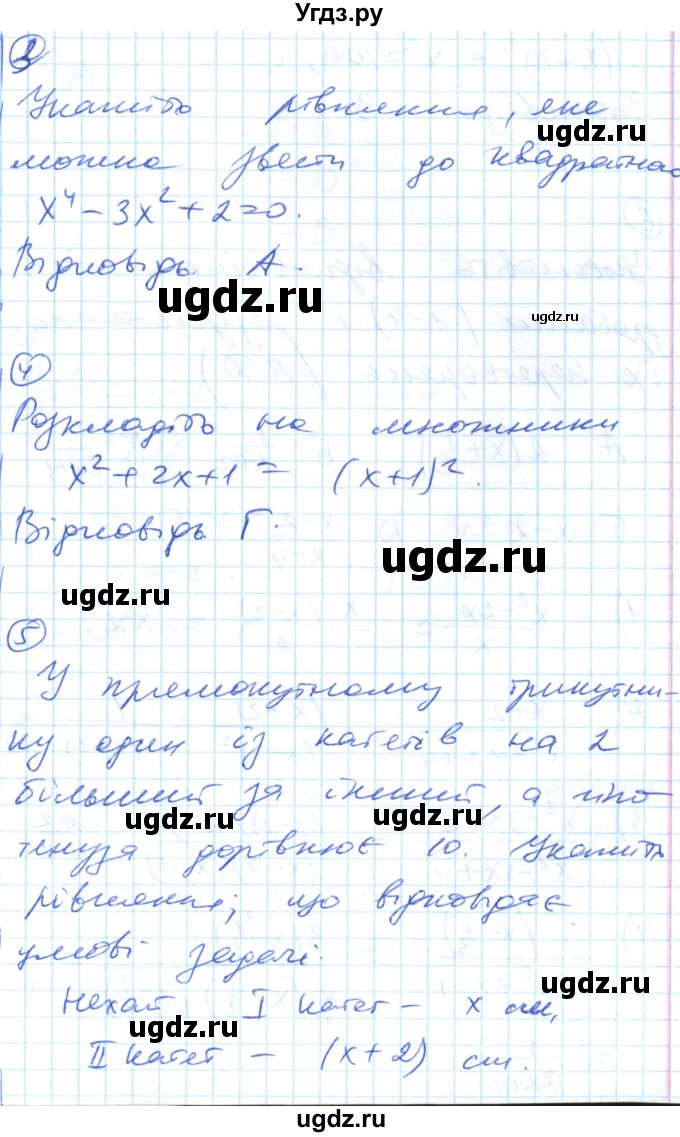 Угдз.ру
3
Укажіть рівняння, яке
ugdz.ru
можна звести до квадратно
x⁴ - 3x² + 2 = 0.
Відповідь А.
ugdz.ru
ugdz.ru
4
Розкладіть на множники
x² + 2x + 1 = (x + 1)².
Відповідь Г.
ugdz.ru
ugdz.ru
5
У прямокутному трикутни-
ку один із катетів на 2
більший за інший, а гіпо
ugdz.ru
ugdz.ru
тенуза дорівнює 10. Укажіть
рівняння, що відповідає
умові задачі.
ugdz.ru
Нехай I катет - x см,
ugdz.ru
II катет - (x + 2) см.
ugdz.ru